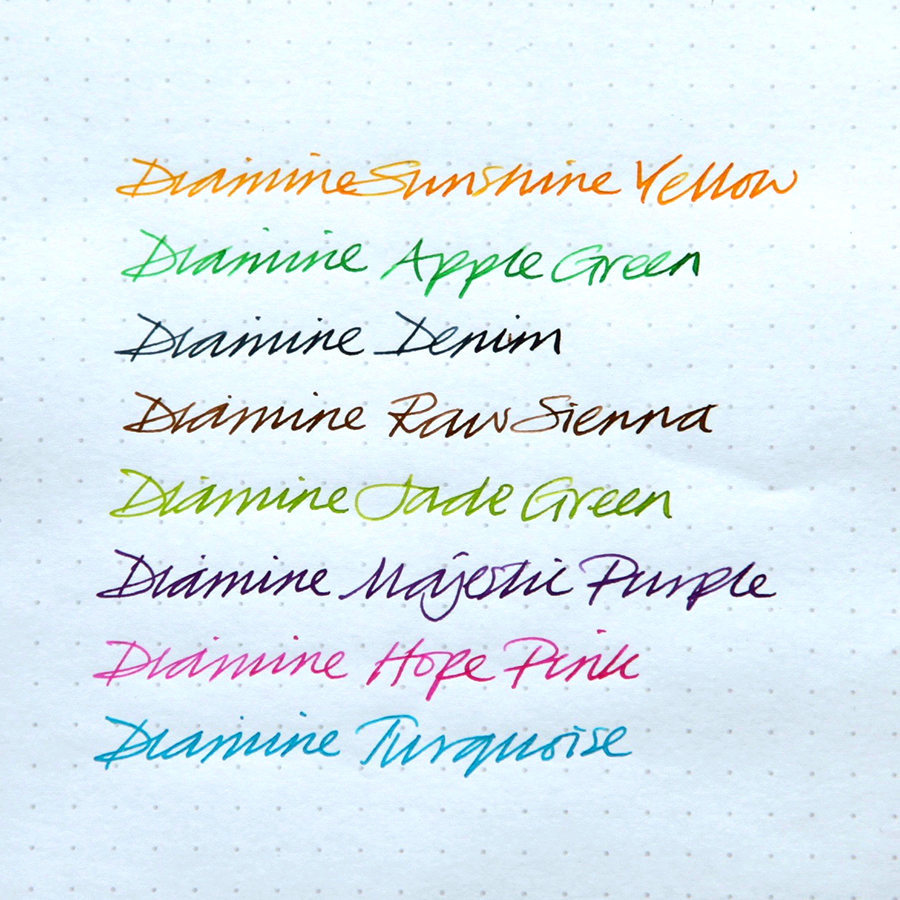 Diamine Sunshine Yellow
Diamine Apple Green
Diamine Denim
Diamine Raw Sienna
Diamine Jade Green
Diamine Majestic Purple
Diamine Hope Pink
Diamine Turquoise